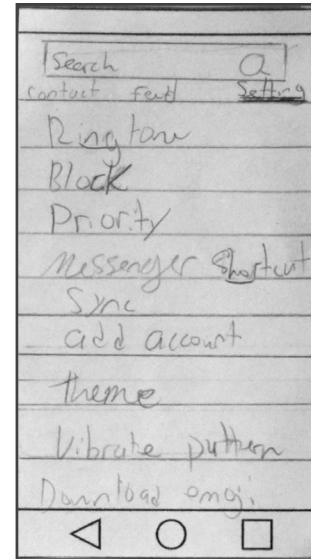 Search
contact Feed Setting
Ringtone
Block
Priority
Messenger Shortcut
Sync
add account
theme
Vibrate puttern
Download emoji